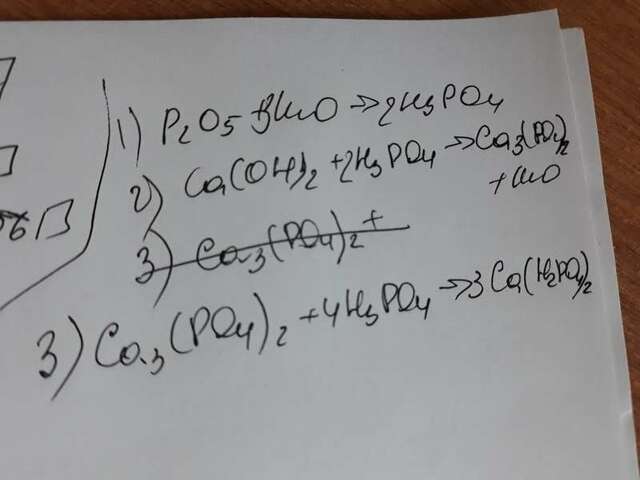 1) P2O5 + 3H2O → 2H3PO4
2) Ca(OH)2 + 2H3PO4 → Ca3(PO4)2
+ H2O
3) Ca3(PO4)2 +
3) Ca3(PO4)2 + 4H3PO4 → 3Ca(H2PO4)2